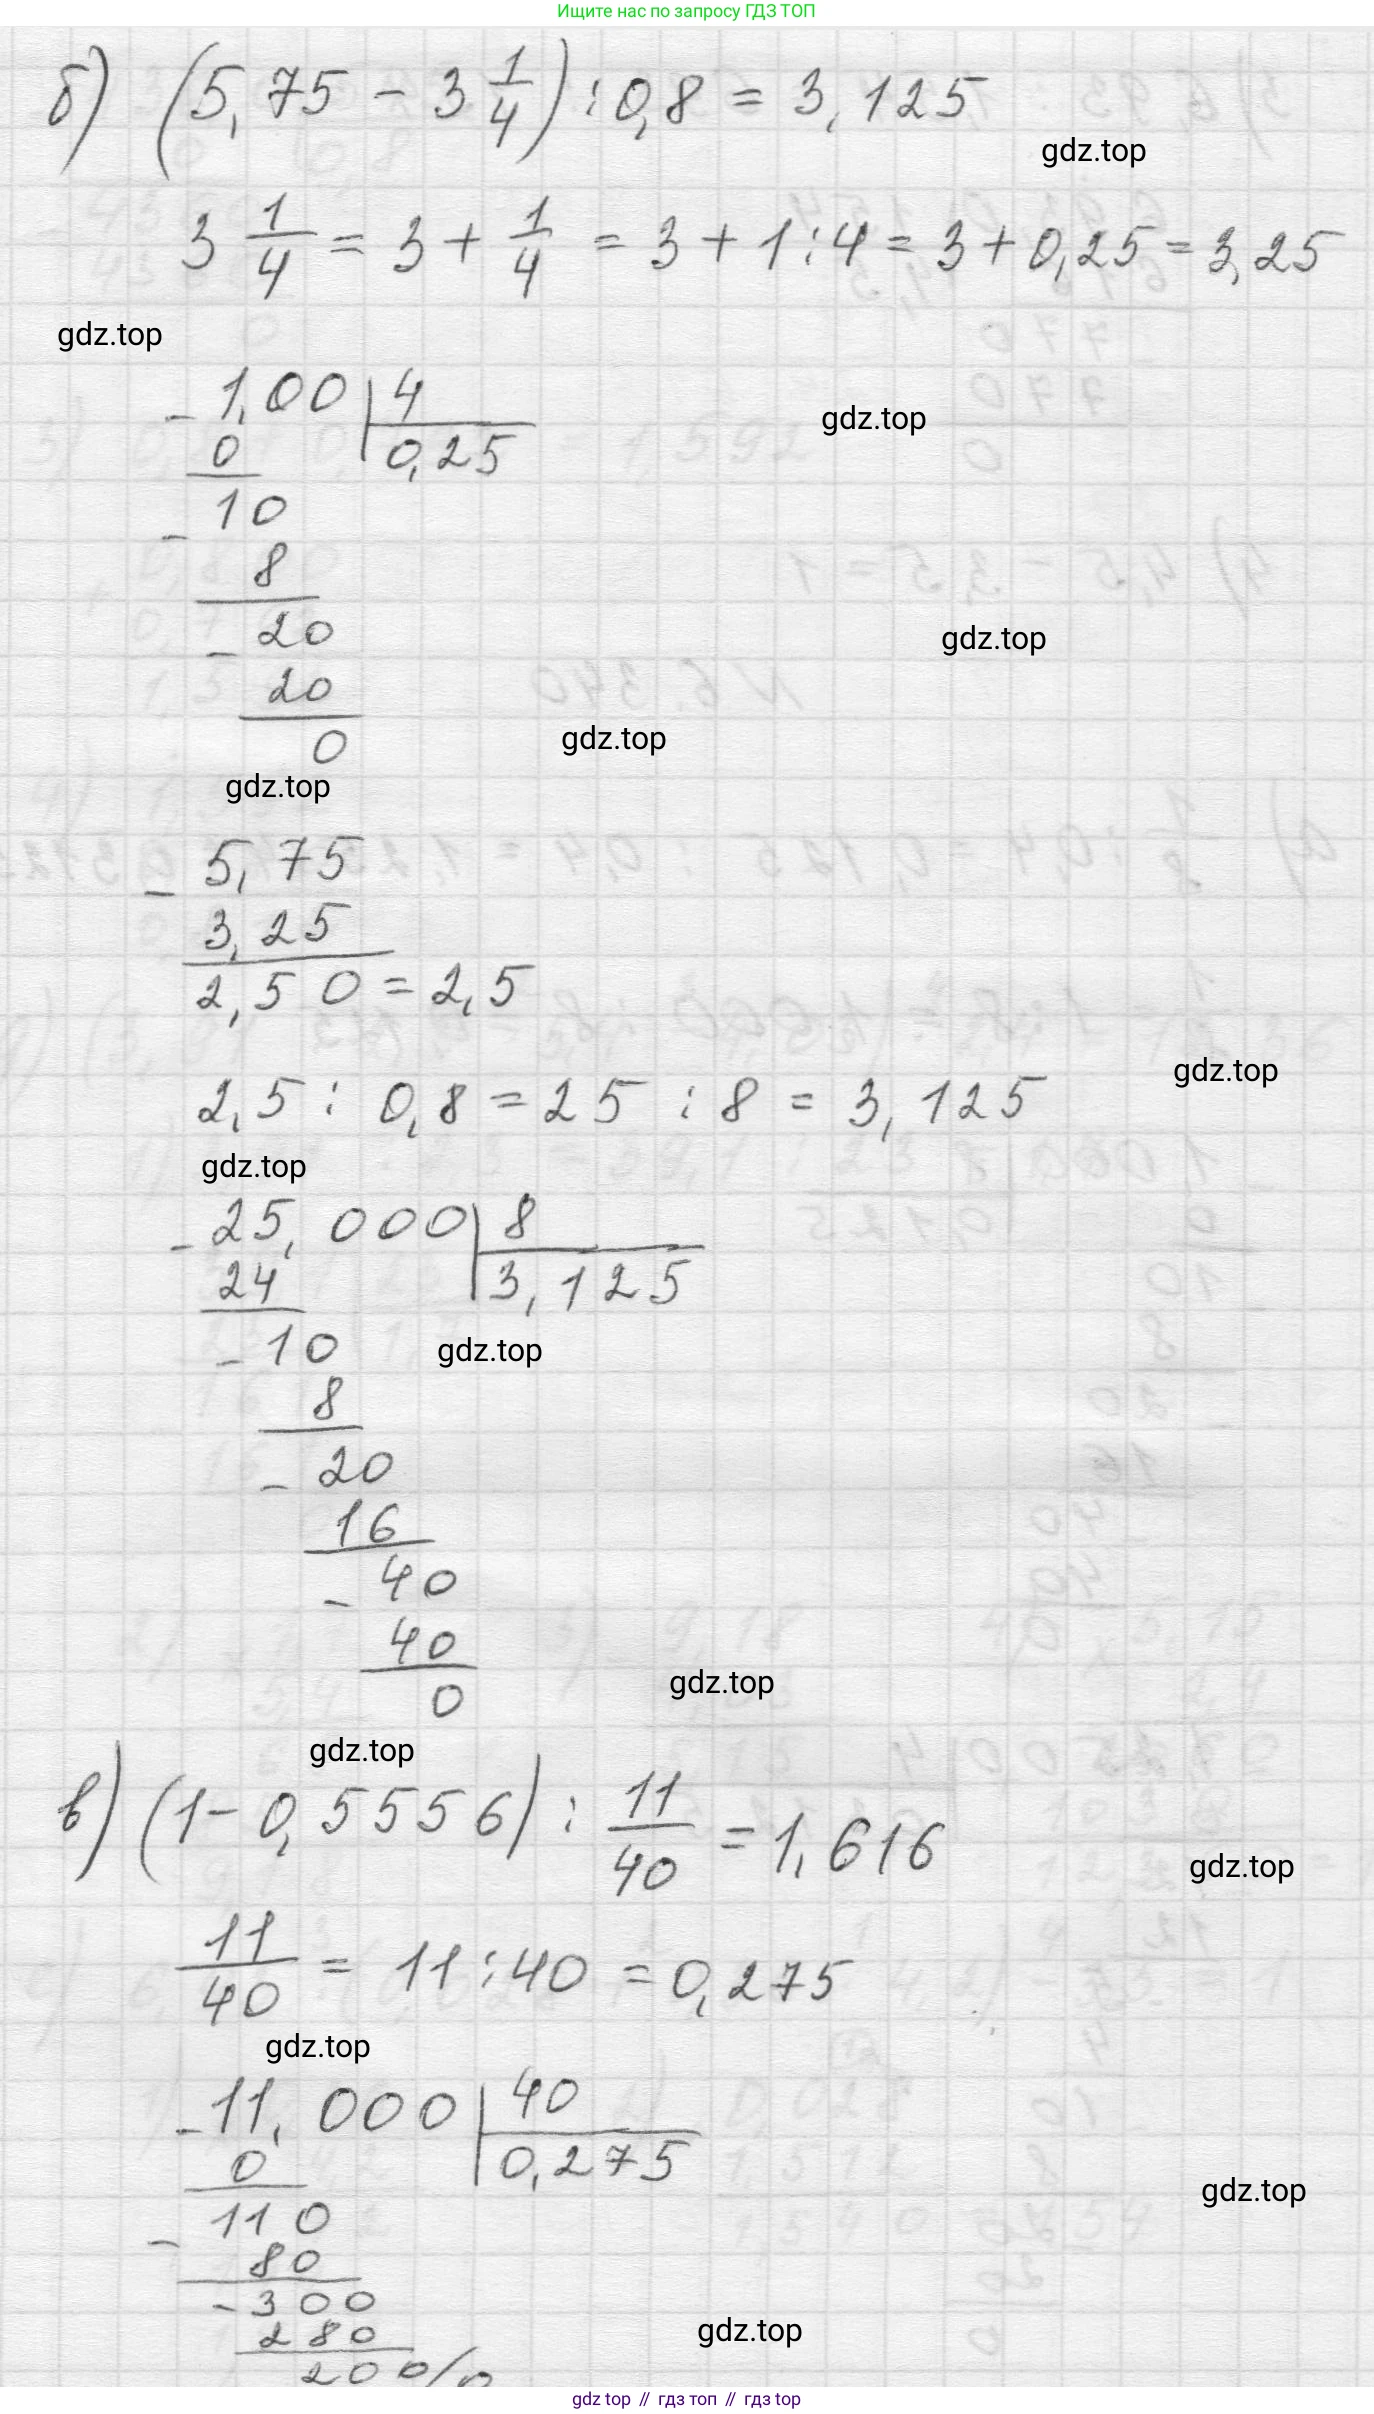 Ищите нас по запросу ГДЗ ТОП
б) (5,75 - 3 1/4) : 0,8 = 3,125
gdz.top
3 1/4 = 3 + 1/4 = 3 + 1 : 4 = 3 + 0,25 = 3,25
gdz.top
- 1,00 | 4
gdz.top
0 0,25
- 10
8
- 20
gdz.top
20
0
gdz.top
gdz.top
- 5,75
3,25
2,50 = 2,5
gdz.top
2,5 : 0,8 = 25 : 8 = 3,125
gdz.top
- 25,000 | 8
24 3,125
- 10
gdz.top
8
- 20
16
- 40
40
0
gdz.top
gdz.top
в) (1 - 0,5556) : 11/40 = 1,616
gdz.top
11/40 = 11 : 40 = 0,275
gdz.top
- 11,000 | 40
0 0,275
gdz.top
- 110
80
- 300
280
gdz.top
200/0
gdz top // гдз топ // gdz top